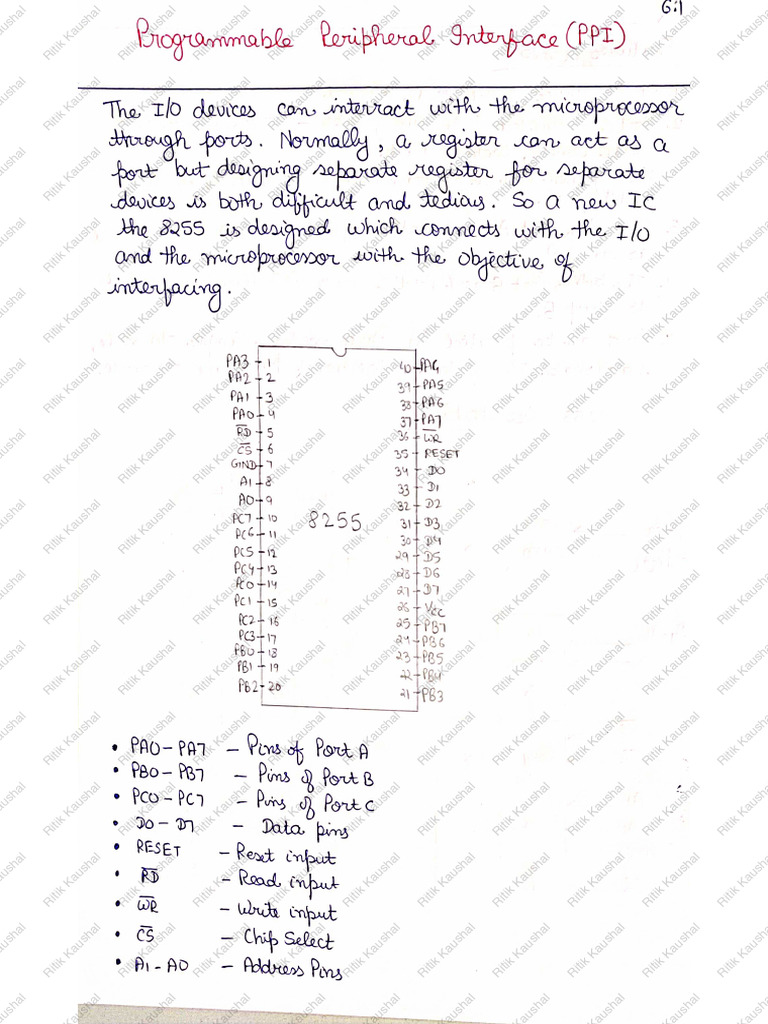 6.1
Programmable Peripheral Interface (PPI)
The I/O devices can interract with the microprocessor
through ports. Normally, a register can act as a
port but designing separate register for separate
devices is both difficult and tedius. So a new IC
the 8255 is designed which connects with the I/O
and the microprocessor with the objective of
interfacing.
PA3 1 40 PA4
PA2 2 39 PA5
PA1 3 38 PA6
PA0 4 37 PA7
R̅D̅ 5 36 W̅R̅
C̅S̅ 6 35 RESET
GND 7 34 D0
A1 8 33 D1
A0 9 32 D2
PC7 10 8255 31 D3
PC6 11 30 D4
PC5 12 29 D5
PC4 13 28 D6
PC0 14 27 D7
PC1 15 26 Vcc
PC2 16 25 PB7
PC3 17 24 PB6
PB0 18 23 PB5
PB1 19 22 PB4
PB2 20 21 PB3
• PA0 - PA7 - Pins of Port A
• PB0 - PB7 - Pins of Port B
• PC0 - PC7 - Pins of Port C
• D0 - D7 - Data pins
• RESET - Reset input
• R̅D̅ - Read input
• W̅R̅ - Write input
• C̅S̅ - Chip Select
• A1 - A0 - Address Pins
Ritik Kaushal